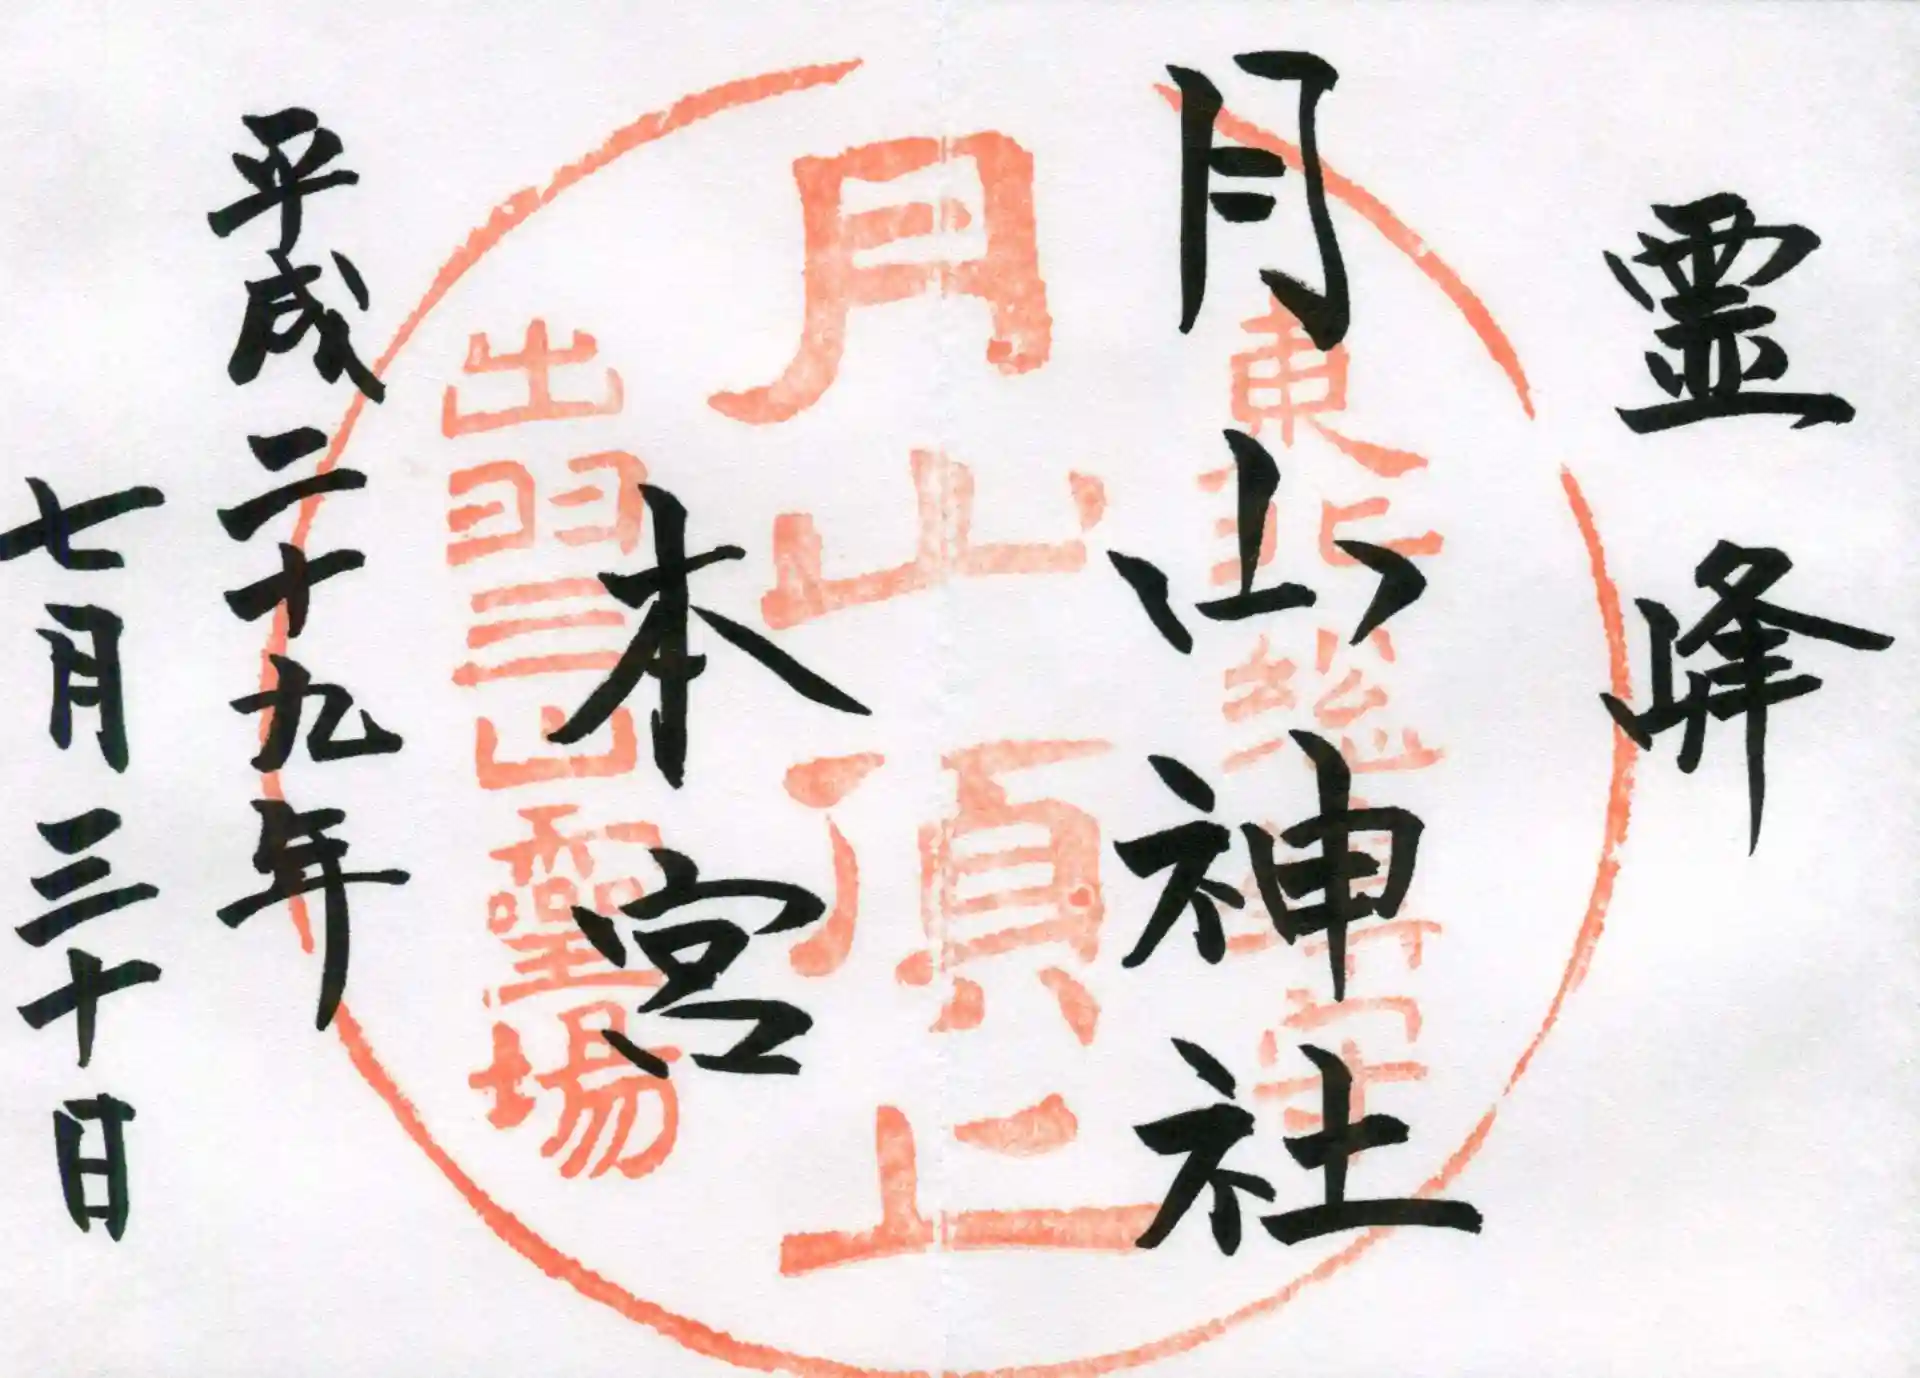 霊峰
月山神社
本宮
平成二十九年
七月三十日
東北総鎮守
月山頂上
出羽三山霊場